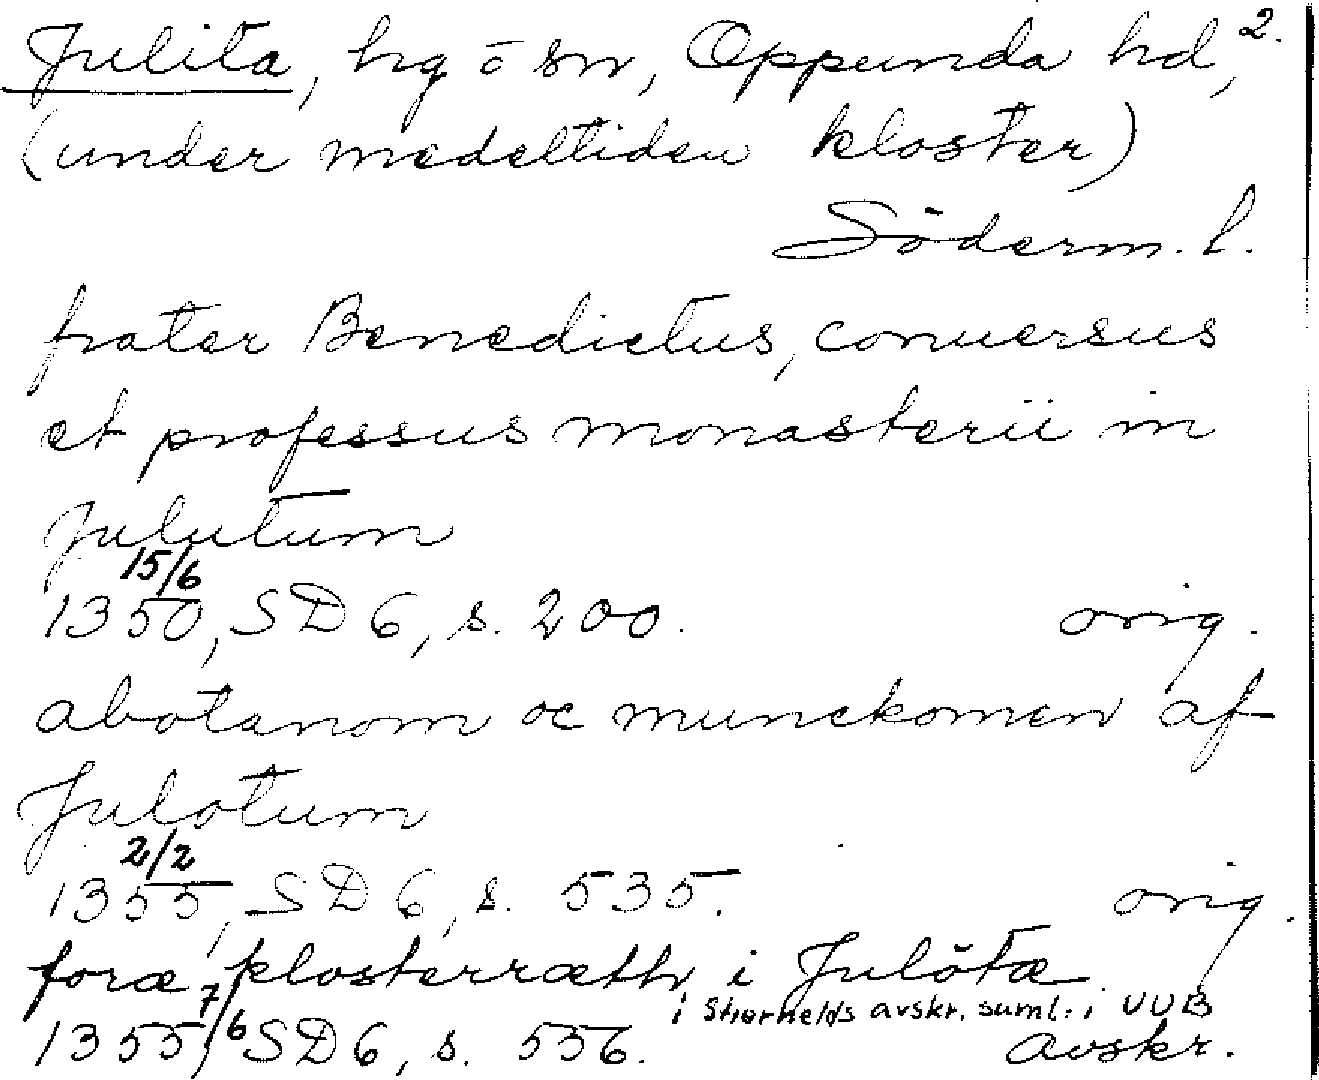 Julita, hg o sn, Oppunda hd, 2.
(under medeltiden kloster)
Söderm. l.
frater Benedictus, conuersus
et professus monasterii in
Julutum
15/6
1350, SD 6, s. 200. orig.
abotanom oc munckomen af
Julotum
2/2
1355, SD 6, s. 535. orig.
foræ klosterræth i Julötæ
i Stiernhelds avskr. saml. i UUB
1355 7/6 SD 6, s. 556. avskr.